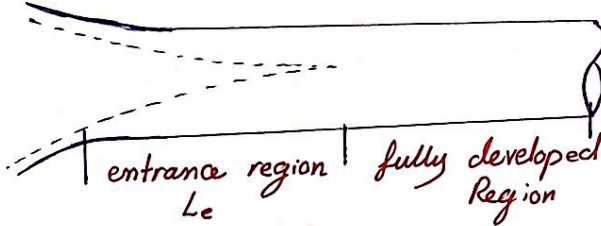 entrance region
Le
fully developed
Region